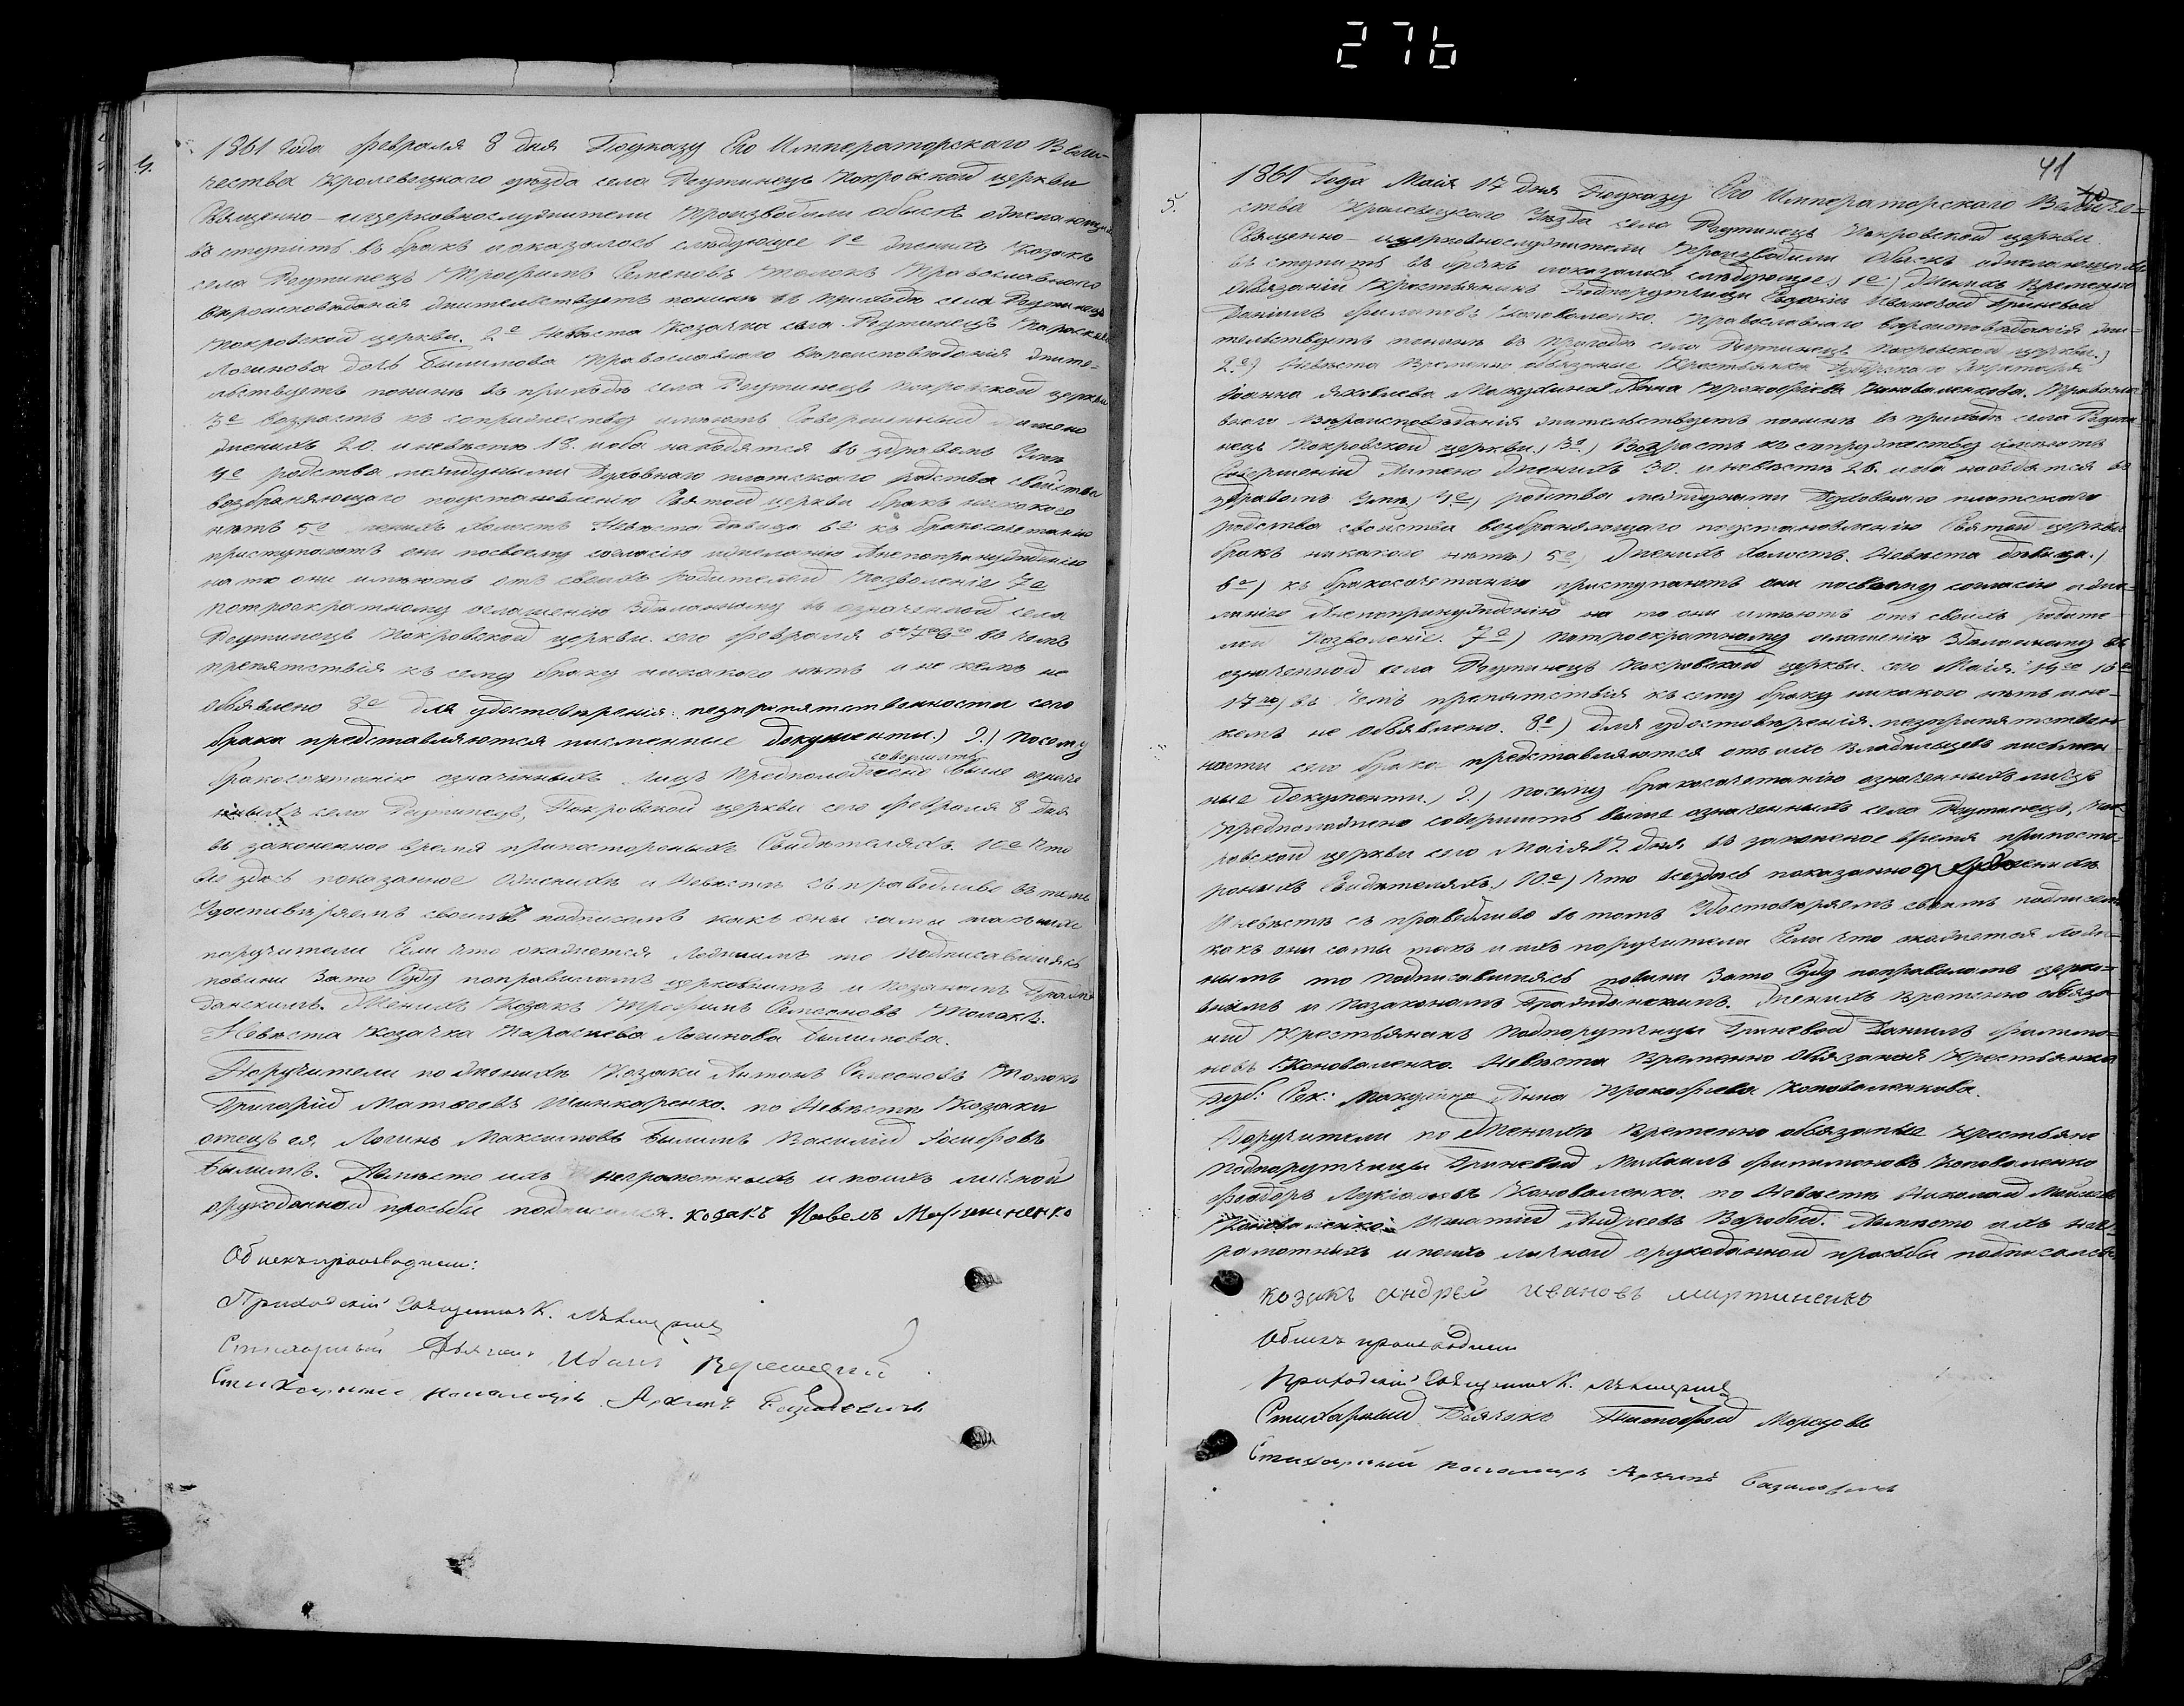 276
4.
1861 года февраля 8 дня Поуказу Его Императорскаго Вели-
чества Кролевецкаго уезда села Реутинецъ Покровской церкви
Священно-ицерковнослужители производили обыскъ ожелающих
вступить въ бракъ ипоказалось следующее 1е женихъ козакъ
села Реутинецъ Трофимъ Семеновъ Толокъ Православнаго
вероисповеданія жительствуетъ понынѣ въ приходѣ села Реутинецъ
Покровской церкви. 2е Невѣста козачка села Реутинецъ Параскева
Логинова дочь Былимова Православнаго вѣроисповѣданія жите-
льствуетъ понынѣ въ приходѣ села Реутинецъ Покровской церкви
3е возрастъ къ супружеству имѣютъ Совершенный имено
женихъ 20. и невѣста 18. иоба находятся въ здравомъ Умѣ
4е родства междуними Духовнаго плотскаго родства свойства
возбраняющаго поустановленію Святой церкви бракъ никакого
нѣтъ 5е женихъ холостъ Невѣста дѣвица 6е къ бракосочетанію
приступаютъ они посвоему согласію ижеланію Анепопринужденію
на то они имѣютъ отъ своихъ родителей Позволеніе 7е
потроекратному оглашенію Зделанному въ означенной села
Реутинецъ Покровской церкви сего февраля въ чемъ
препятствія къ сему браку никакого нѣтъ и не кемъ не
объявлено 8е для удостовѣренія незпрепятственности сего
брака представляются писменные документы.) 9.) посему
совершить
бракосочетанію означенныхъ лицъ Предположено выше означе
нныхъ села Реутинецъ, Покровской церкви сего февраля 8 дня
въ законенное время припостороныхъ Свидѣтеляхъ. 10е Что
всездѣсь показанное Оженихѣ и Невѣстѣ съправедливо въ томъ
Удостовѣряемъ своимъ подписомъ какъ они сами такъ иихъ
поручители Если что окажется ложнымъ то Подписавшіясь
повины Зато Суду поправиламъ церковнымъ и позаконамъ Граж
данскимъ. Женихъ Козакъ Трофимъ Семеновъ Толокъ.
Невѣста Козачка Параскева Логинова Былимова.
Поручители по женихѣ Козаки Антонъ Семеновъ Толокъ
Григорій Матвеевъ Шинкаренко. по Невѣстѣ Козаки
отецъ ея Логинъ Максимовъ Былимъ Василій Іосифовъ
Былимъ. Авмѣсто ихъ неграмотныхъ и поихъ личной
орукоданной просьбы подписался. козакъ Павелъ Мартиненко
Обыскъ производили:
Приходскій Священникъ.
Стихарный Дьячекъ Иванъ
Стихарный пономарь Архипъ Базилевичъ
41
5.
1861 Года Маія 17 дня Поуказу Его Императорскаго Величе-
ства Кролевецкаго Уезда села Реутинецъ Покровской церкви
Священно-ицерковнослужители Производили Обыскъ ожелающихъ
вступить въ бракъ ипоказалось следующее) 1е) Женихъ Временно
Обязаній Крестьянинъ Подпорутчицы Ивановой Гриневой
Даніилъ Филимовъ Коноваленко. Православнаго вѣроисповѣданія жи-
тельствуетъ понынѣ въ приходѣ села Реутинецъ Покровской церкви.)
2е) Невѣста Временно обязаная Крестьянка Губернскаго Секретаря
Іоанна Яковлева Анна Прокофіева Коноваленкова. Правосла
внаго Вѣроисповѣданія жительствуетъ понынѣ въ приходѣ села Реути
нецъ Покровской церкви.) 3е) Возрастъ къ супружеству имѣютъ
Совершеній Имено Женихъ 30. и невѣста 26. иоба находятся въ
здравомъ Умѣ) 4е) родства междуними Духовнаго плотскаго
родства свойства возбраняющаго поустановленію Святой церкви
бракъ никакого нѣтъ) 5е) Женихъ холостъ. Невѣста дѣвица.)
6е) къ бракосочетанію приступаютъ они посвоему согласію ижи-
ланію Анепопринужденію на то они имѣютъ отъ своихъ родите
лей Позволеніе. 7е) Потроекратному оглашенію Зделанному въ
означенной села Реутинецъ Покровской церкви. сего Маія.
17го) въ чемъ препятствія къ сему браку никакого нѣтъ ине-
кемъ не объявлено. 8е) для удостовѣренія незпрепятствен
ности сего брака представляются отъ ихъ владѣльцевъ письмен
ные документы.) 9.) посему бракосочетанію означенныхъ лицъ
предположено совершить выше означенныхъ села Реутинецъ, Пок
ровской церкви сего Маія 17. дня, въ законеное время припосто-
роныхъ Свидѣтеляхъ.) 10е) Что всездѣсь показанное Оженихѣ
Иневѣстѣ съправедливо въ томъ Удостовѣряемъ своимъ подписомъ
какъ они сами такъ и ихъ поручители Если что окажется ложн-
нымъ то подписавшіясь повины Зато Суду поправиламъ церко-
внымъ и позаконамъ Гражданскимъ. Женихъ Временно обяза
ный Крестьянинъ Подпорутчицы Гриневой Даніилъ Филимо-
новъ Коноваленко. Невѣста Временно Обязаная Крестьянка
Губ: Сек: Анна Прокофіева Коноваленкова.
Поручители по Женихѣ Временно обязаные Крестьяне
Подпорутчицы Гриневой Михаилъ Филимоновъ Коноваленко
Федоръ Коноваленко. по Невѣстѣ Николай
Коноваленко Игнатій Андреевъ Воробей. Авмѣсто ихъ нег
рамотныхъ и поихъ личной орукоданной просьбы подписался
козакъ Андрей Ивановъ Мартиненко
Обыскъ производили
Приходскій Священникъ.
Стихарный Дьячекъ Тимофей
Стихарный пономарь Архипъ Базилевичъ